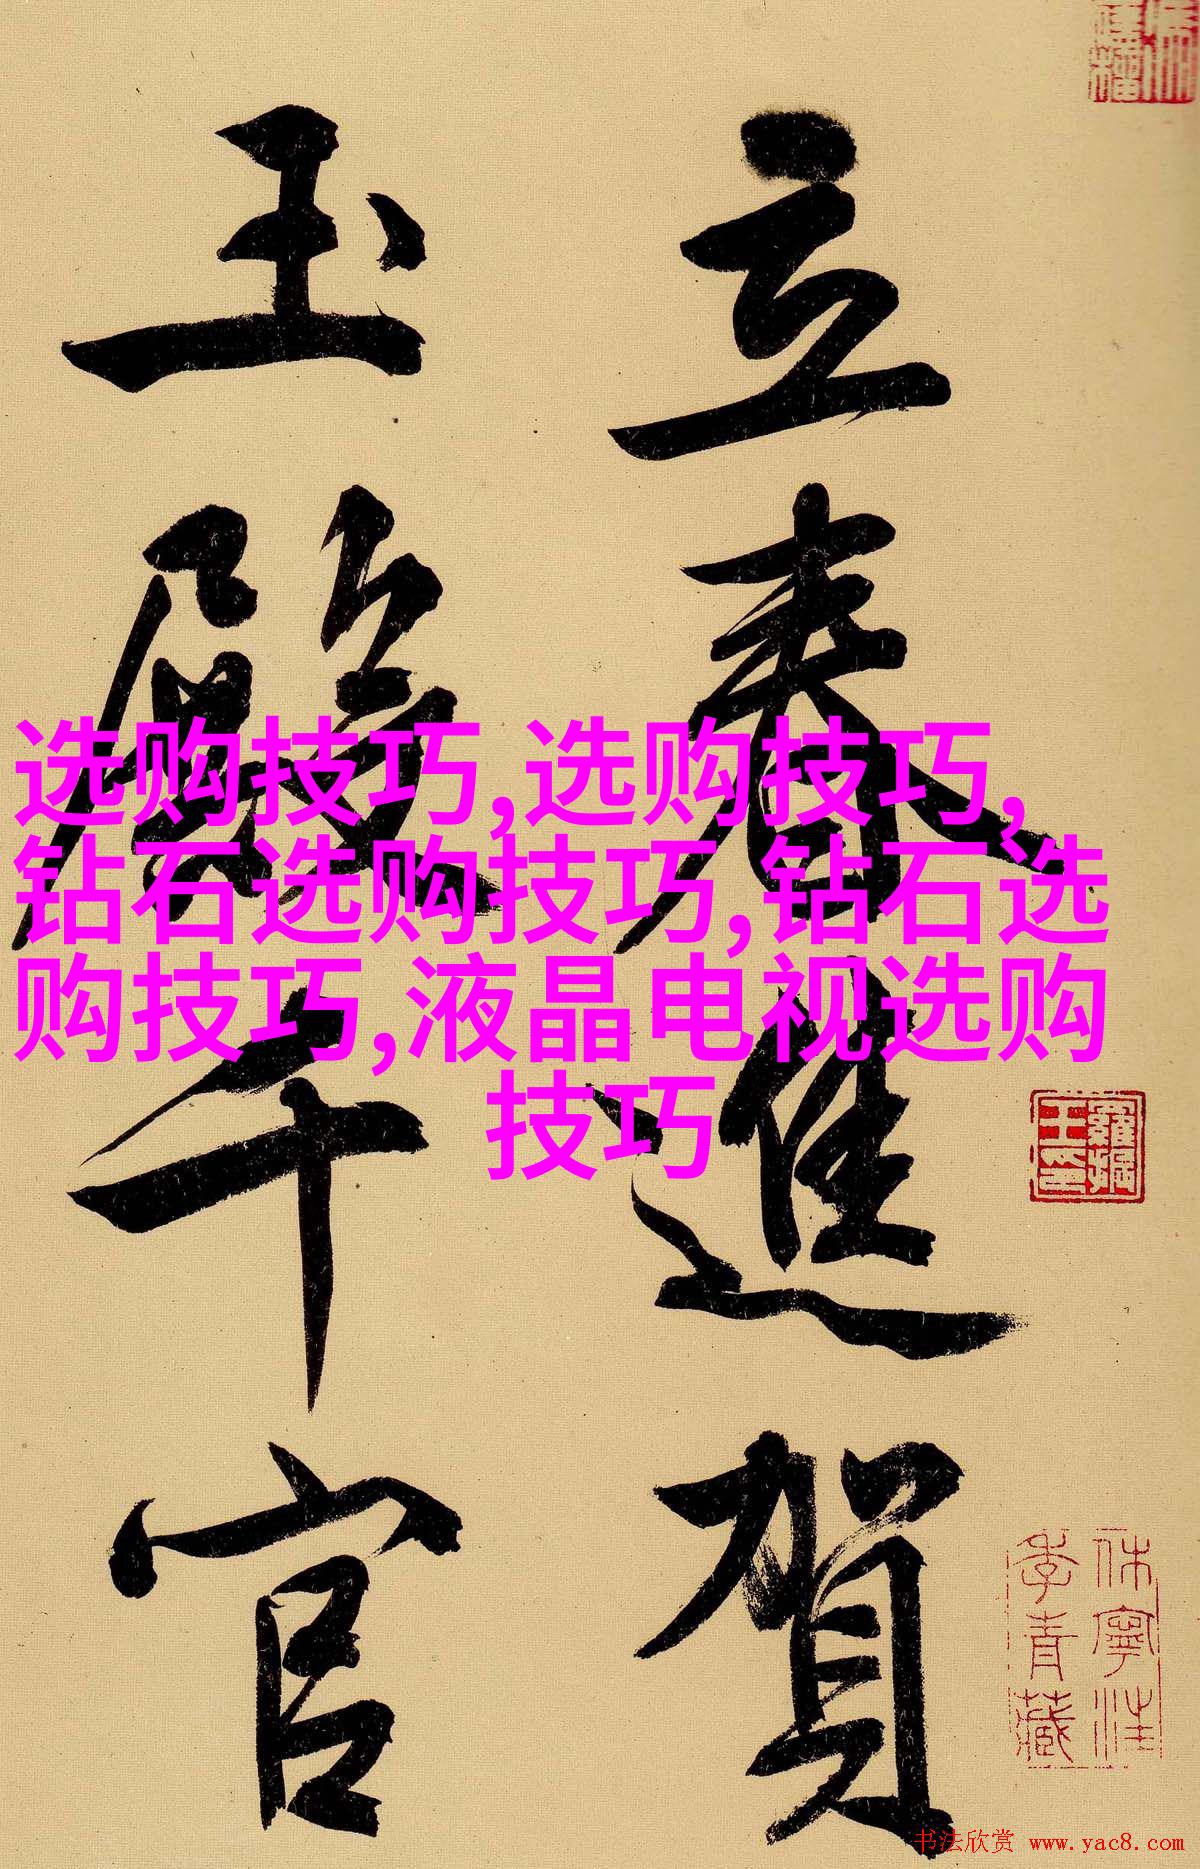 立春進賀
玉殿千官
选购技巧,选购技巧,
钻石选购技巧,钻石选
购技巧,液晶电视选购
技巧
羅振
王印
休寧汪
季青藏
书法欣赏 www.yac8.com